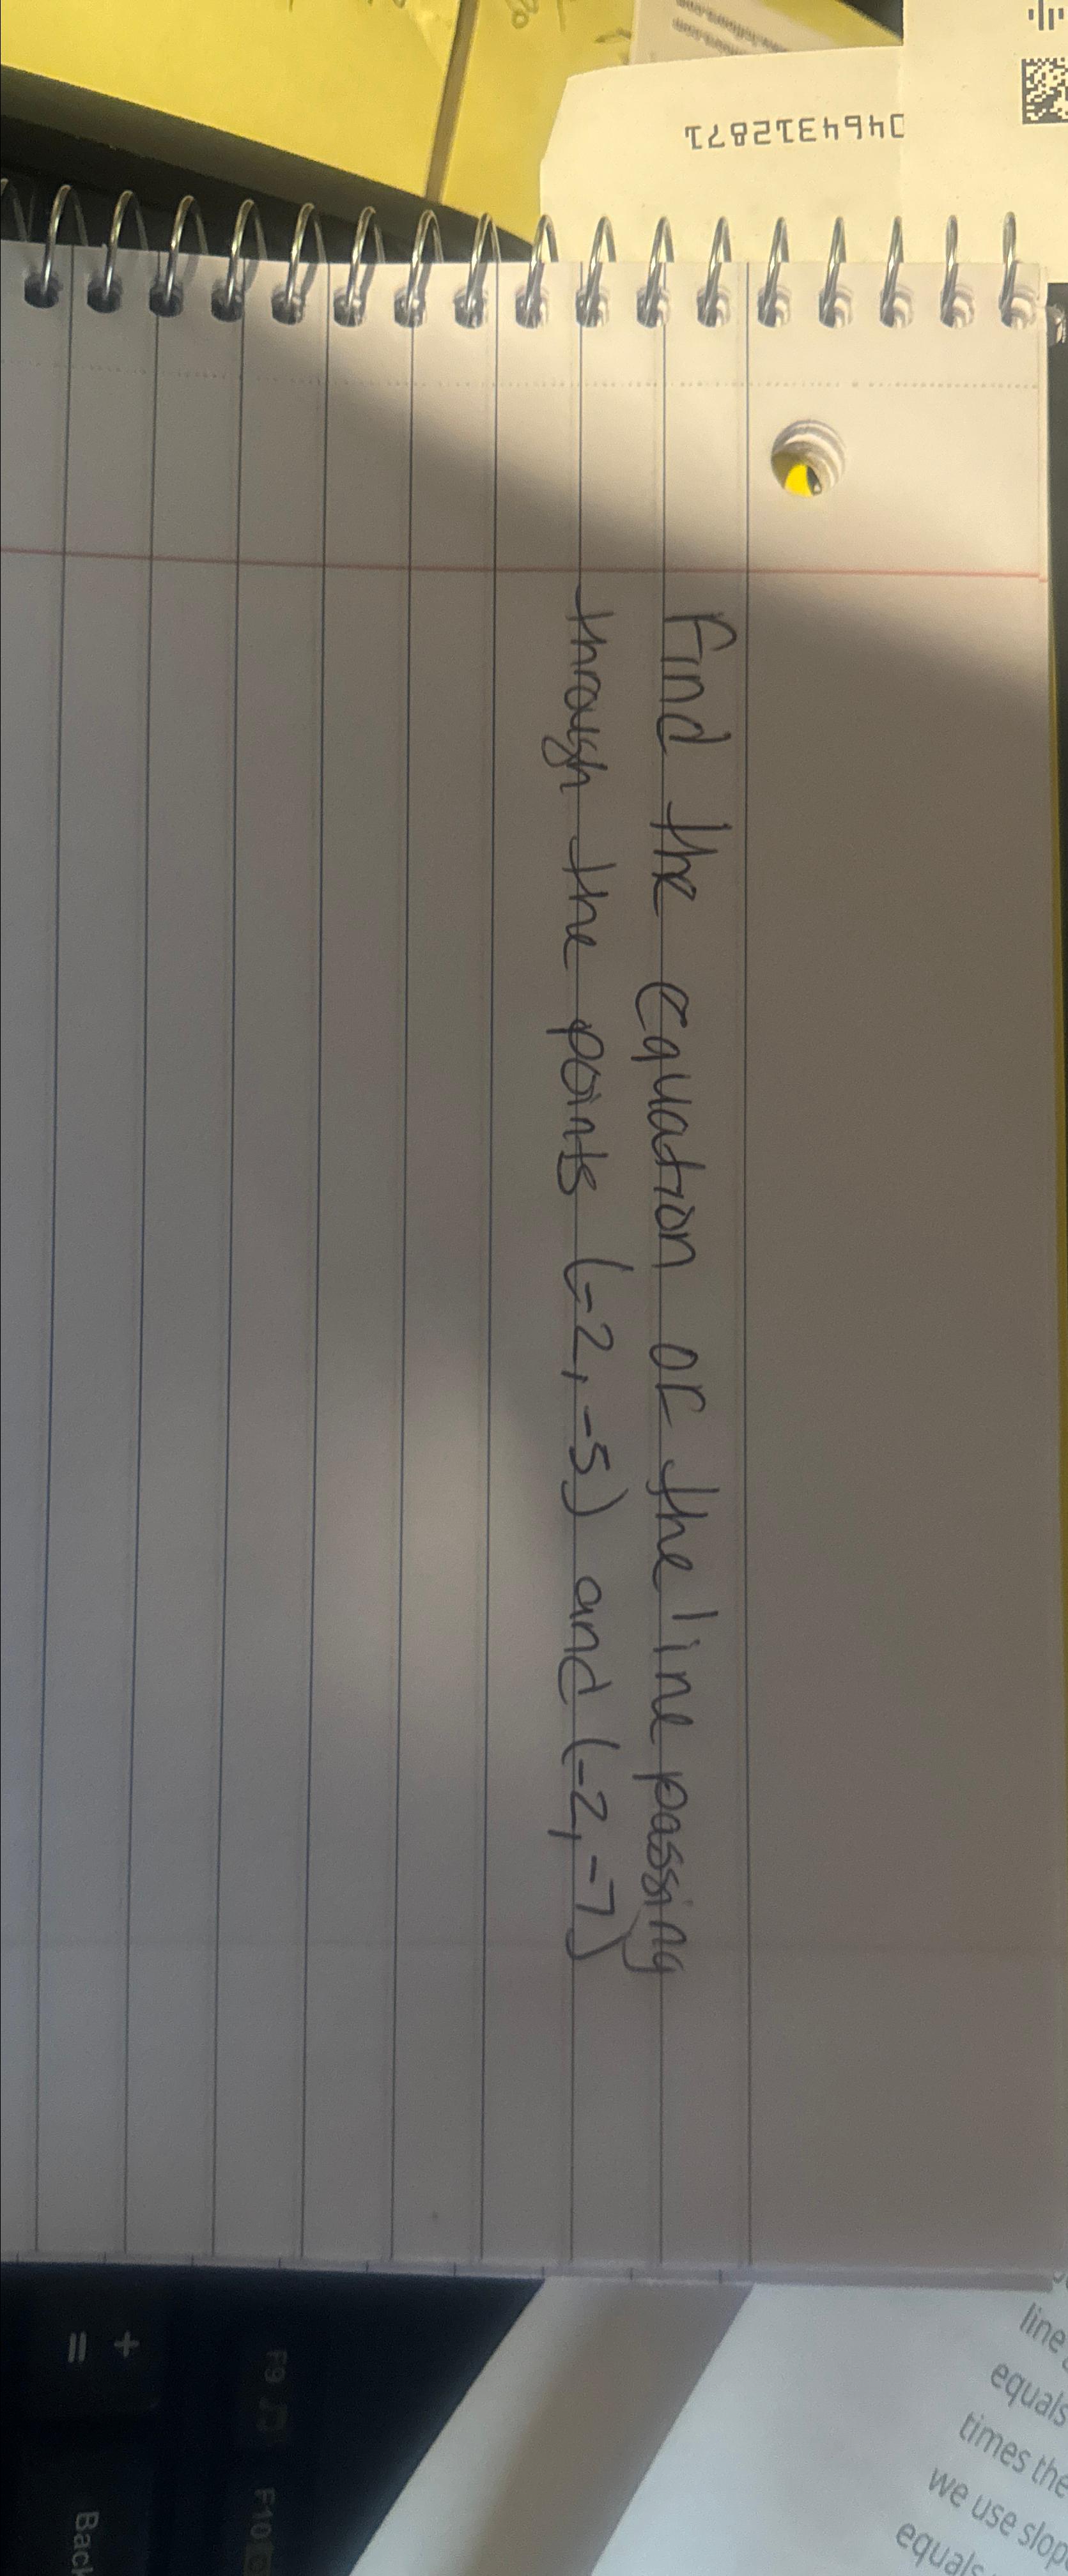 0464312871
Find the equation of the line passing
through the points (-2,-5) and (-2,-7)
line
equals
times the
we use slop
equals
+
=
F9
F10
Back